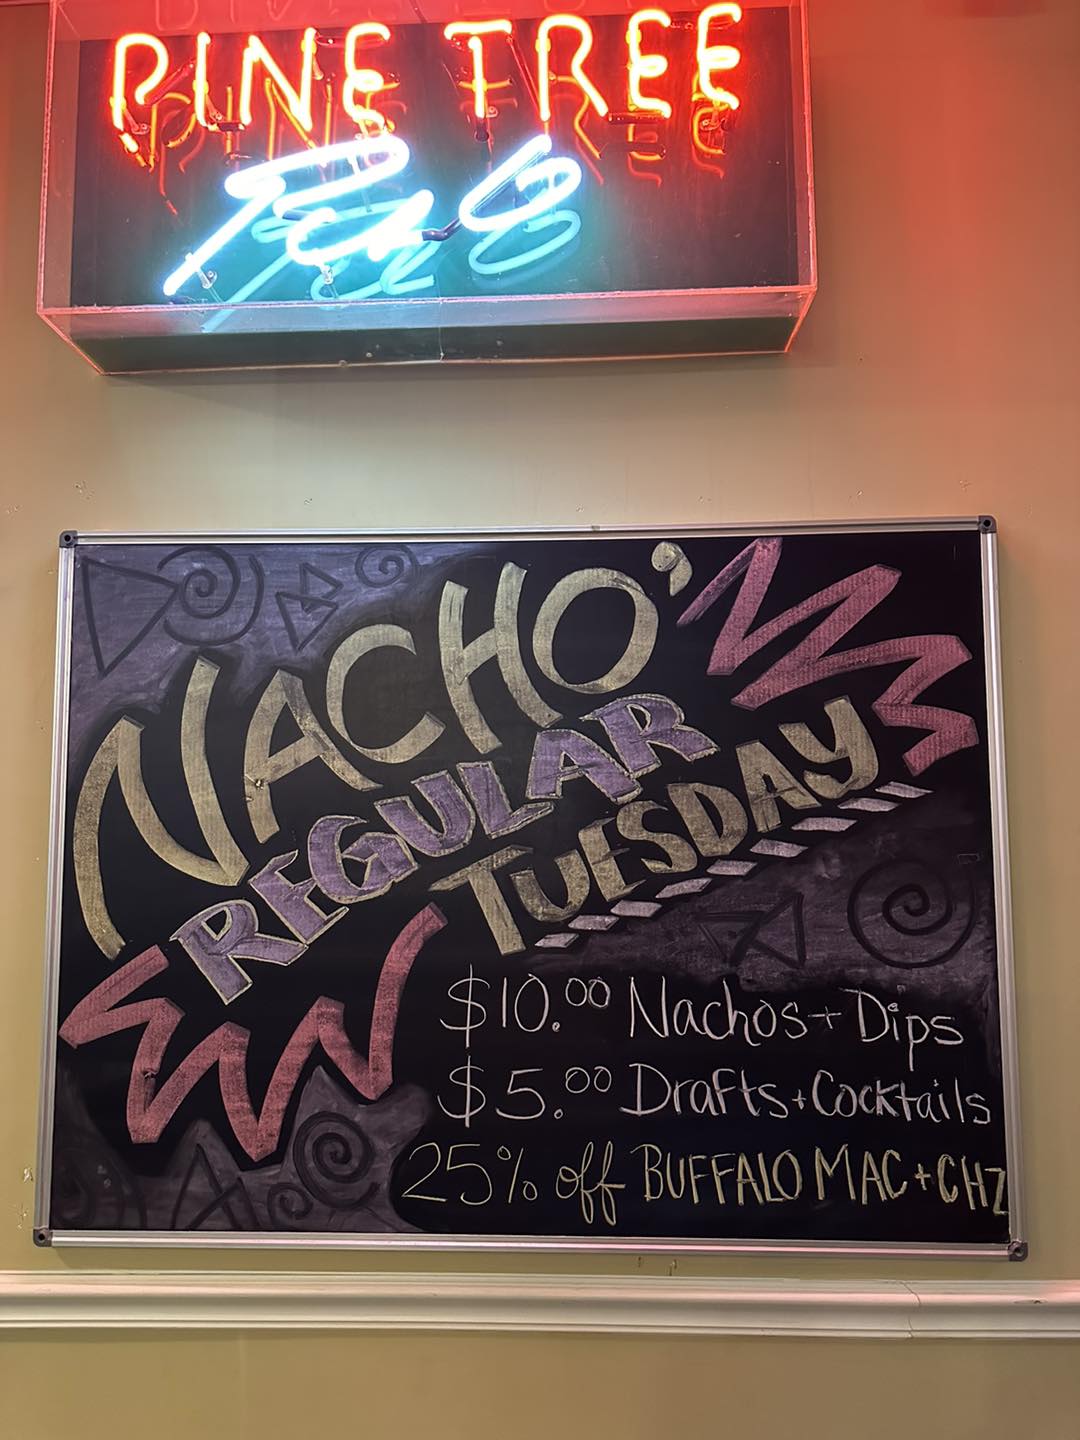 PINE TREE
Pub
NACHO'
REGULAR
TUESDAY
$10.00 Nachos + Dips
$5.00 Drafts + Cocktails
25% off BUFFALO MAC + CHZ